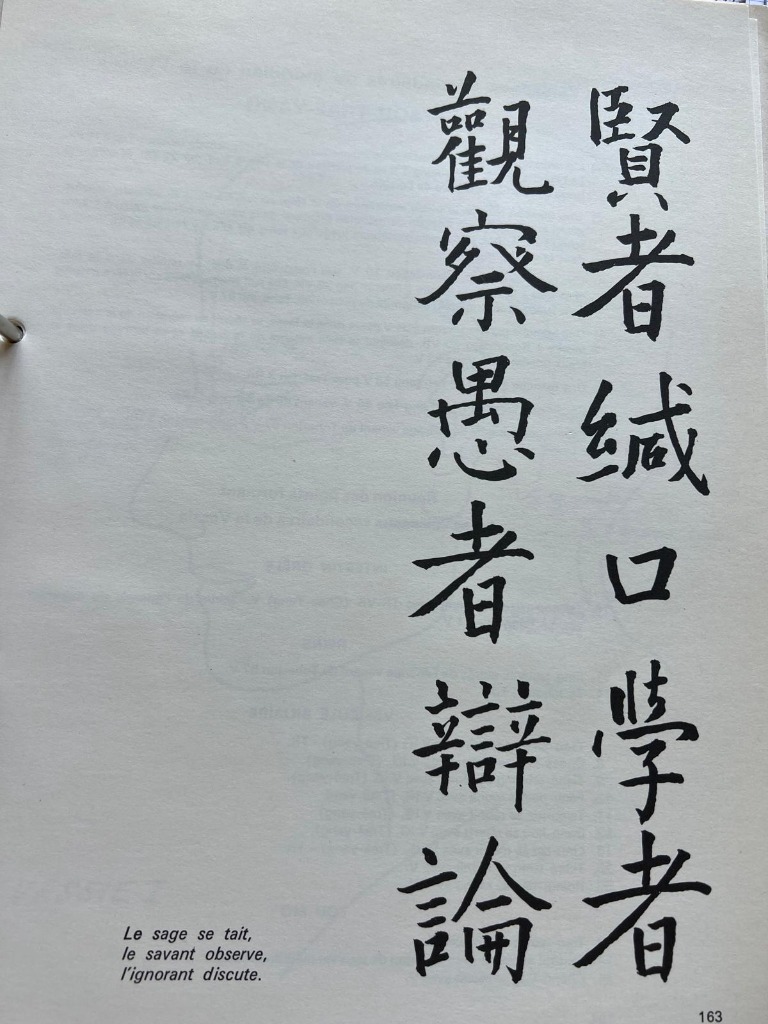 賢者緘口學者
觀察愚者辯論
Le sage se tait,
le savant observe,
l'ignorant discute.
163